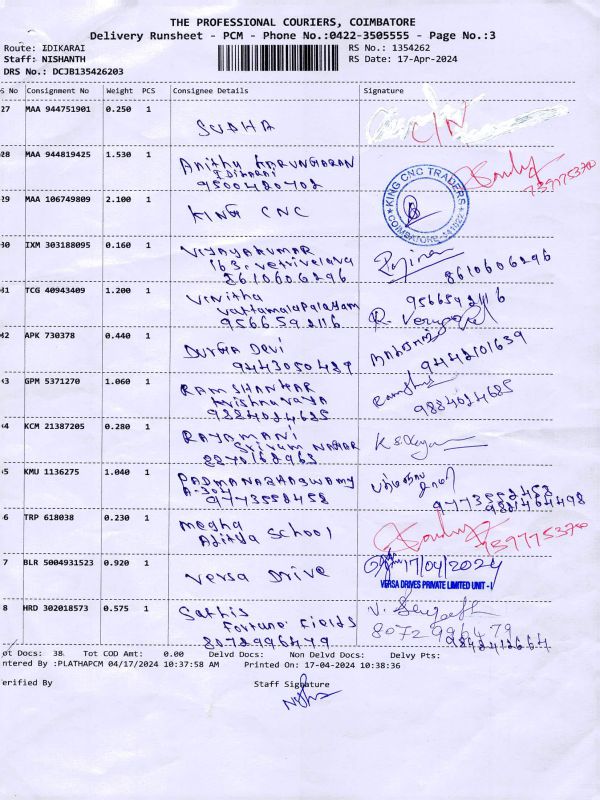 THE PROFESSIONAL COURIERS, COIMBATORE
Delivery Runsheet - PCM - Phone No.:0422-3505555 - Page No.:3
Route: IDIKARAI RS No.: 1354262
Staff: NISHANTH RS Date: 17-Apr-2024
DRS No.: DCJB135426203
S No Consignment No Weight PCS Consignee Details Signature
27 MAA 944751901 0.250 1
SUDHA C/N
28 MAA 944819425 1.530 1
Anitha KARUNGARAN
Idikarai
9500480702 7597753700
29 MAA 106749809 2.100 1
KING CNC KING CNC TRADERS COIMBATORE-641022
30 IXM 303188095 0.160 1
VIJAYAKUMAR
163, vetrivelava
8610606296 8610606296
31 TCG 40943409 1.200 1
Vinitha 9566592116
Vattamalaipalayam
9566592116 R. Venugopal
32 APK 730378 0.440 1
DURGA Devi
9443050489 9442101639
33 GPM 5371270 1.060 1
RAMSHANKAR
krishnuraya
9884024685 9884024685
34 KCM 21387205 0.280 1
RAYAMANI
Srirum NAGAR
8270168963
35 KMU 1136275 1.040 1
PADMANABHASWAMY
A-304
9773558458 9773558458
9881464498
6 TRP 618038 0.230 1
Megha
Aditya School 7597753700
7 BLR 5004931523 0.920 1
Versa Drive 17/04/2024
VERSA DRIVES PRIVATE LIMITED UNIT - I
8 HRD 302018573 0.575 1
Sathis
Fortune Fields
8072996479 8072996479
ot Docs: 38 Tot COD Amt: 0.00 Delvd Docs: Non Delvd Docs: Delvy Pts:
ntered By :PLATHAPCM 04/17/2024 10:37:58 AM Printed On: 17-04-2024 10:38:36
erified By Staff Signature